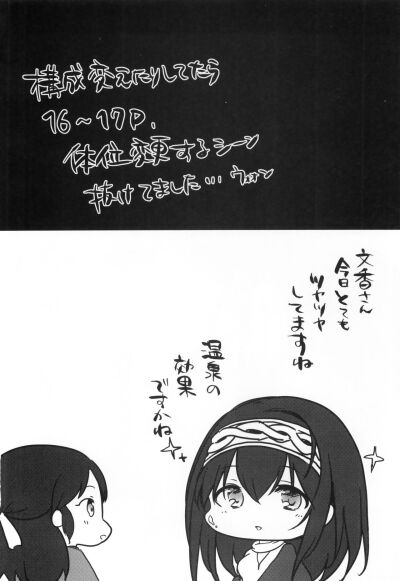 構成変えたりしてたら
16～17P.
体位変更するシーン
抜けてました…ウォン
文香さん
今日とても
ツヤツヤ
してますね
温泉の
効果
ですかね